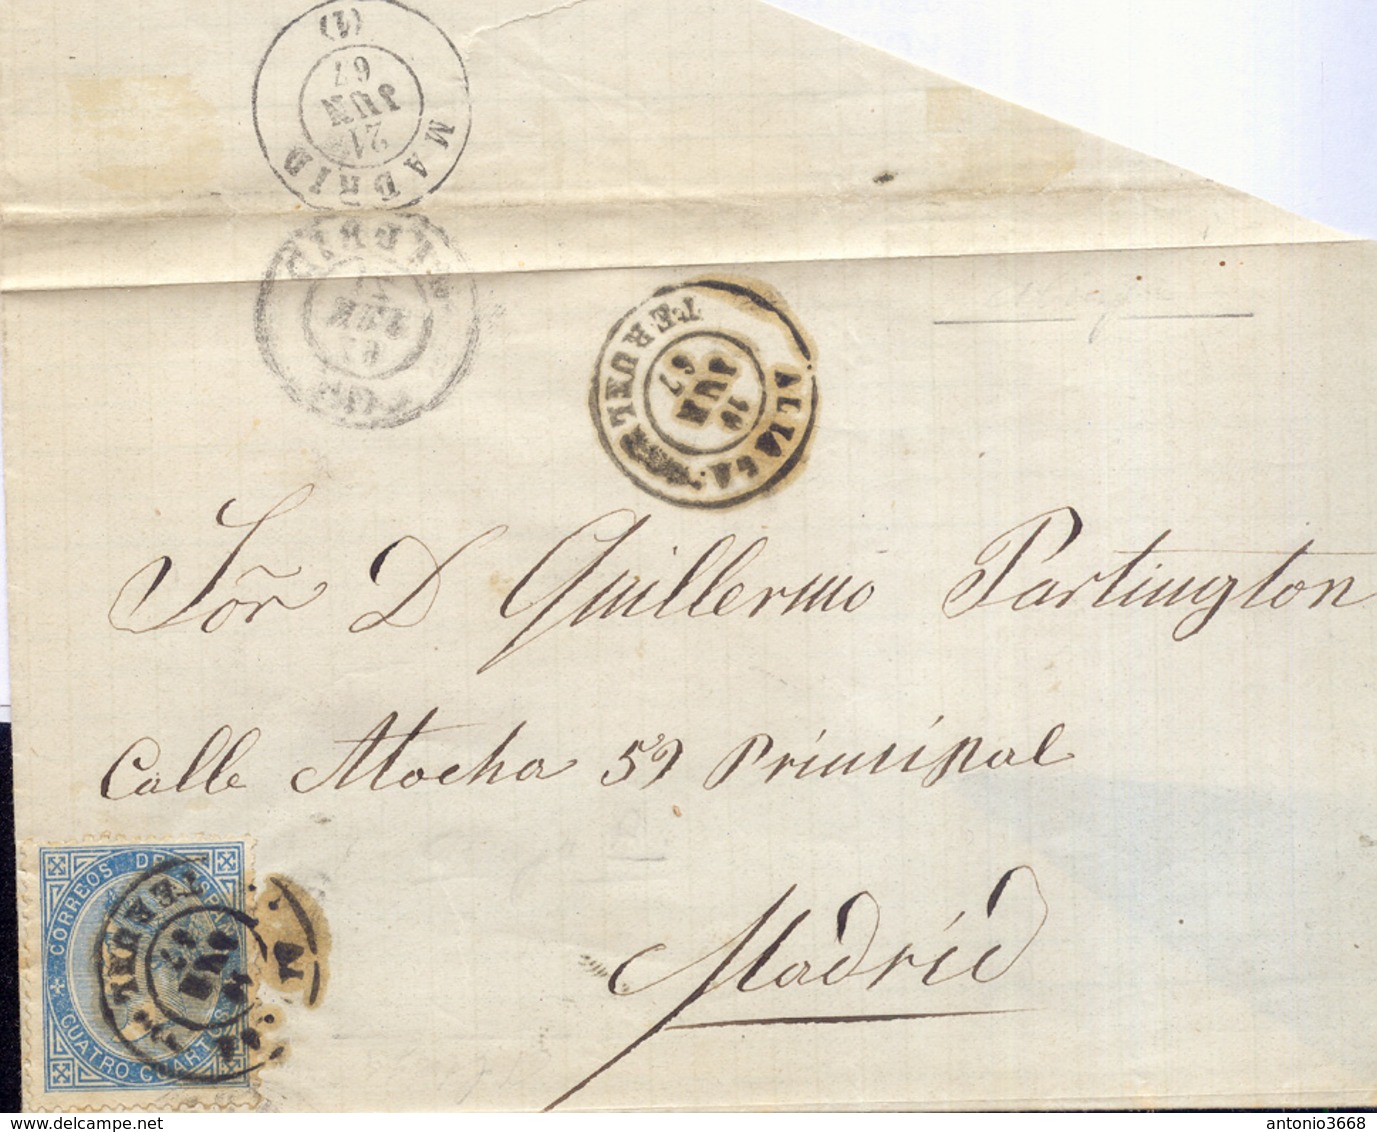 (1)
67
JUN
21
MADRID
TERUEL
ALIAGA
JUN
67
Sõr D Guillermo Partington
Calle Atocha 59 Principal
Madrid
CORREOS DE ESPAÑA
TERUEL
CUATRO CUARTOS
delcampe.net
antonio3668